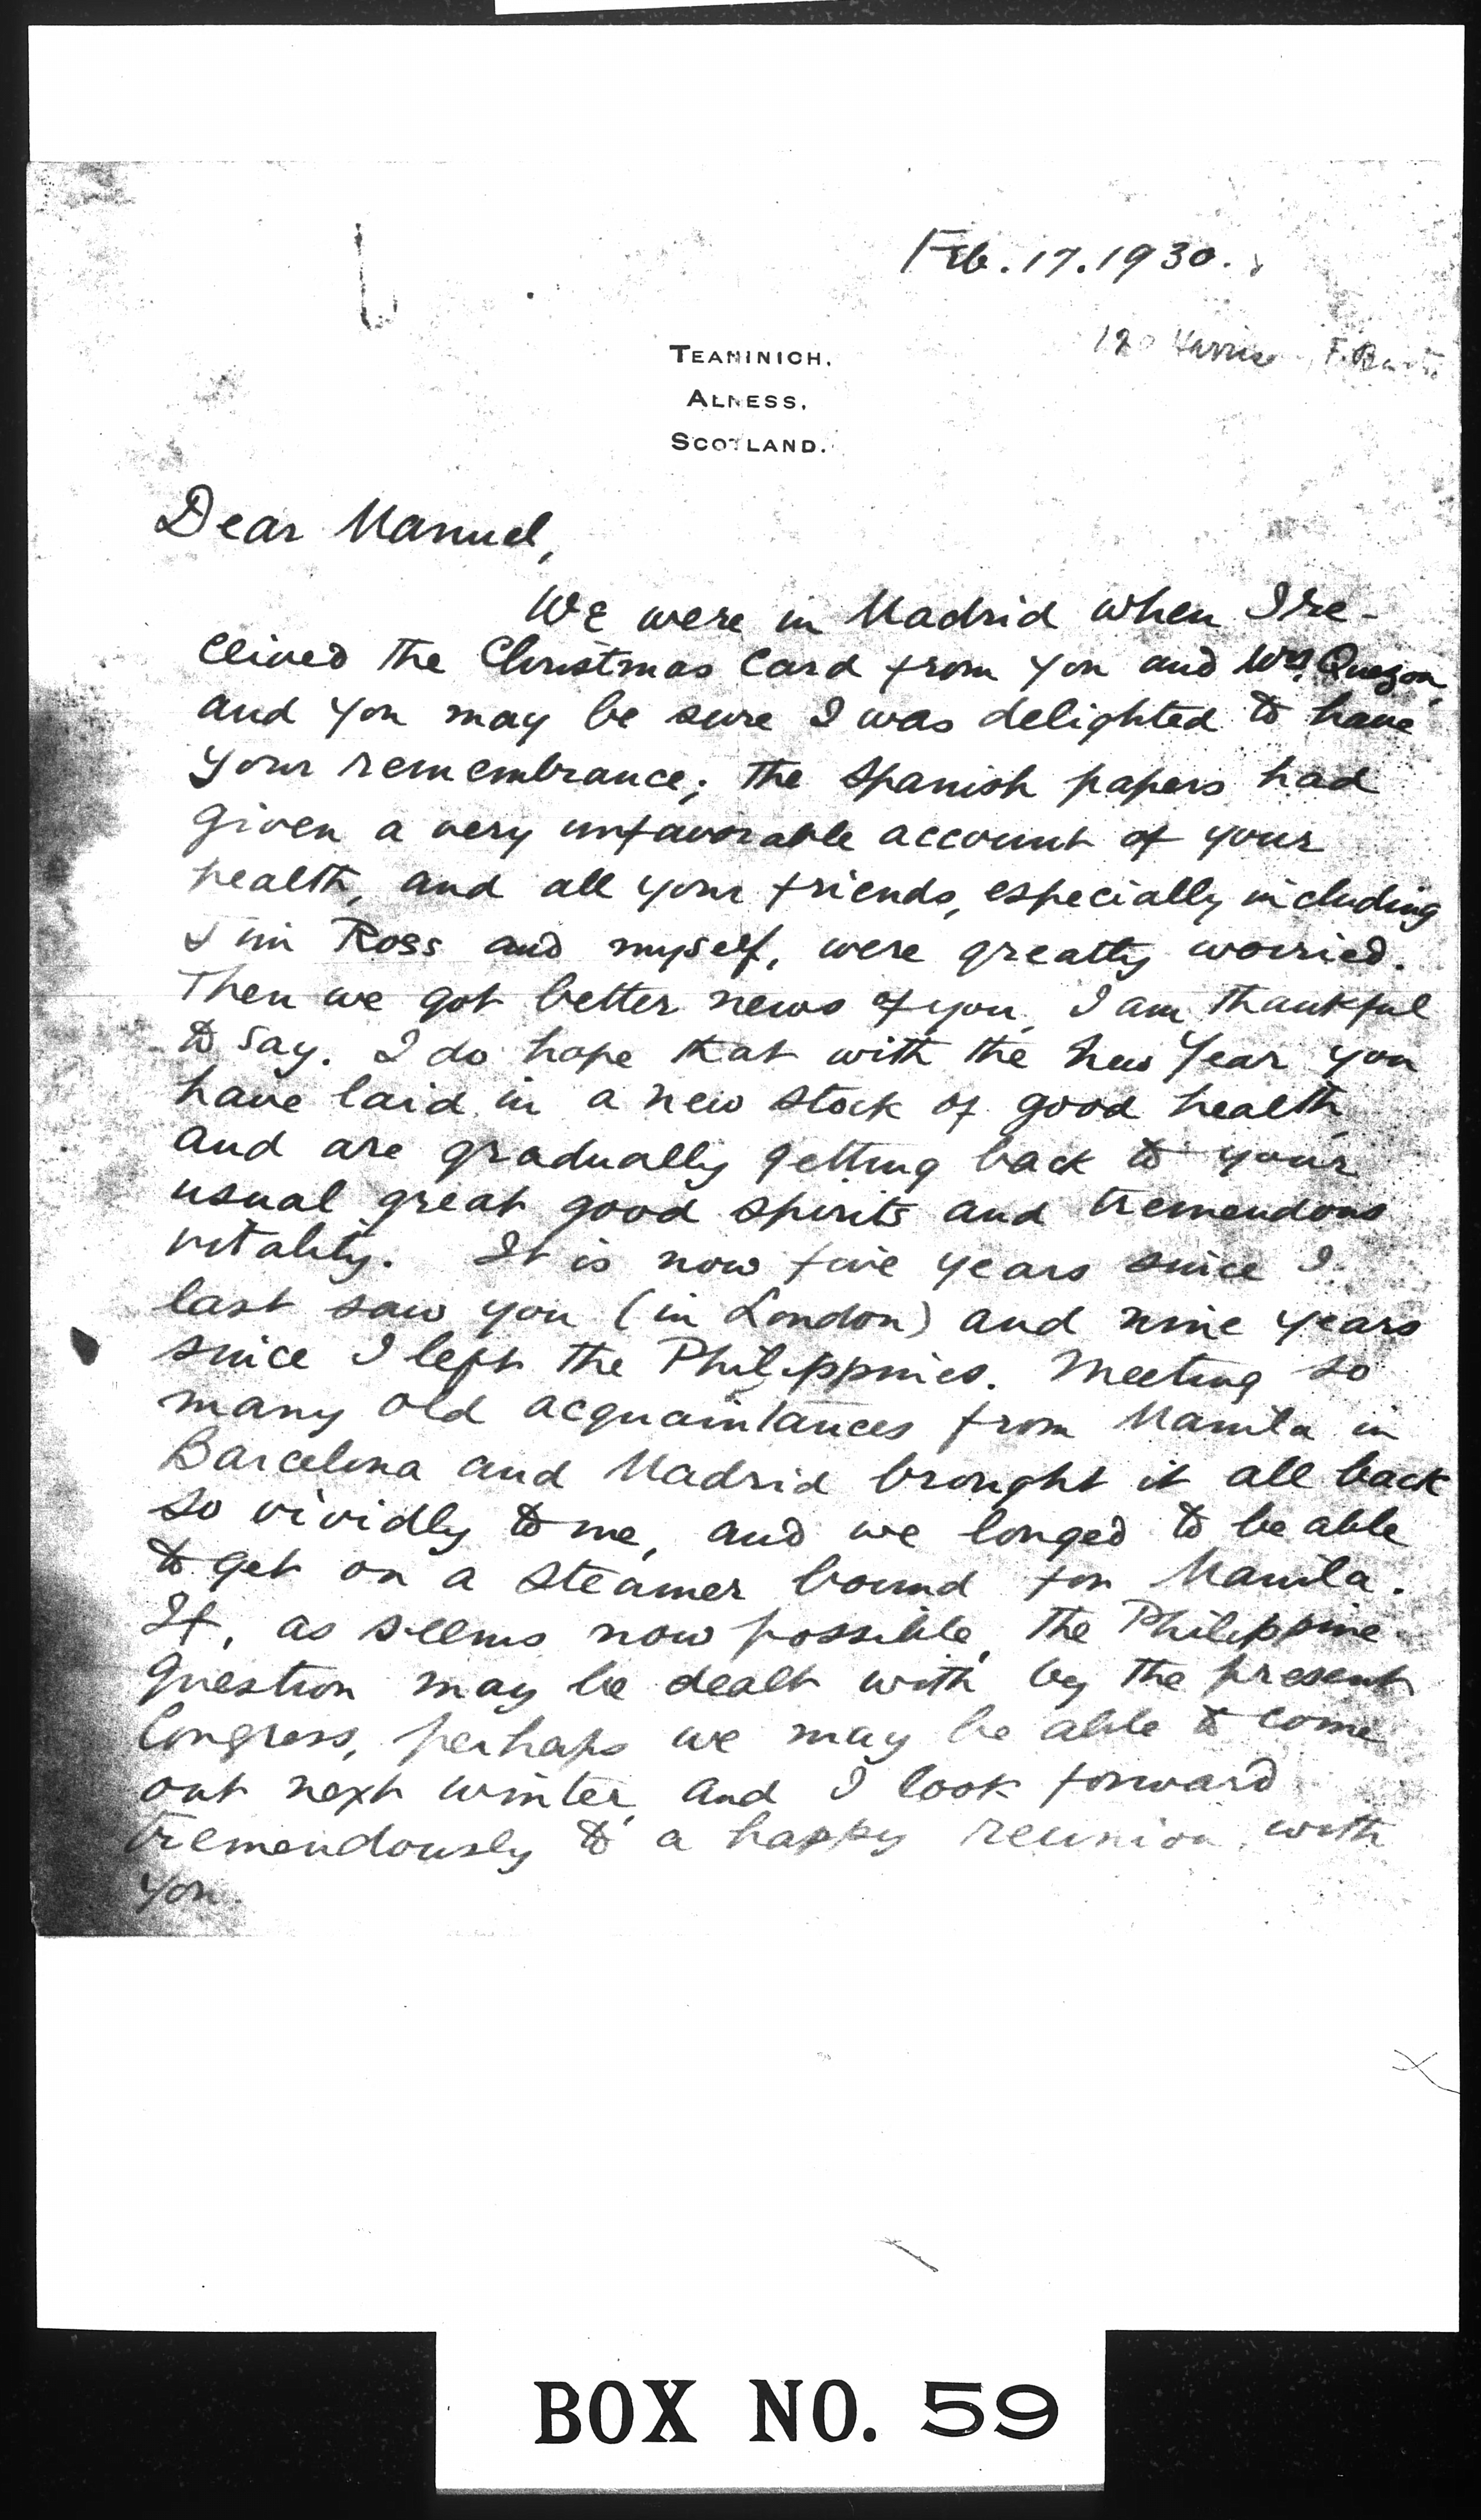 Feb. 17. 1930.
TEANINICH.
ALNESS.
SCOTLAND.
Dear Manuel,
We were in Madrid when I re-
ceived the Christmas Card from you and Mrs. Quezon,
and you may be sure I was delighted to have
your remembrance; the Spanish papers had
given a very unfavorable account of your
health, and all your friends, especially including
Jim Ross and myself, were greatly worried.
Then we got better news of you, I am thankful
to say. I do hope that with the New Year you
have laid in a new stock of good health,
and are gradually getting back to your
usual great good spirits and tremendous
vitality. It is now five years since I
last saw you (in London) and nine years
since I left the Philippines. Meeting so
many old acquaintances from Manila in
Barcelona and Madrid brought it all back
so vividly to me, and we longed to be able
to get on a steamer bound for Manila.
If, as seems now possible, the Philippine
question may be dealt with by the present
Congress, perhaps we may be able to come
out next winter, and I look forward
tremendously to a happy reunion with
you.
BOX NO. 59